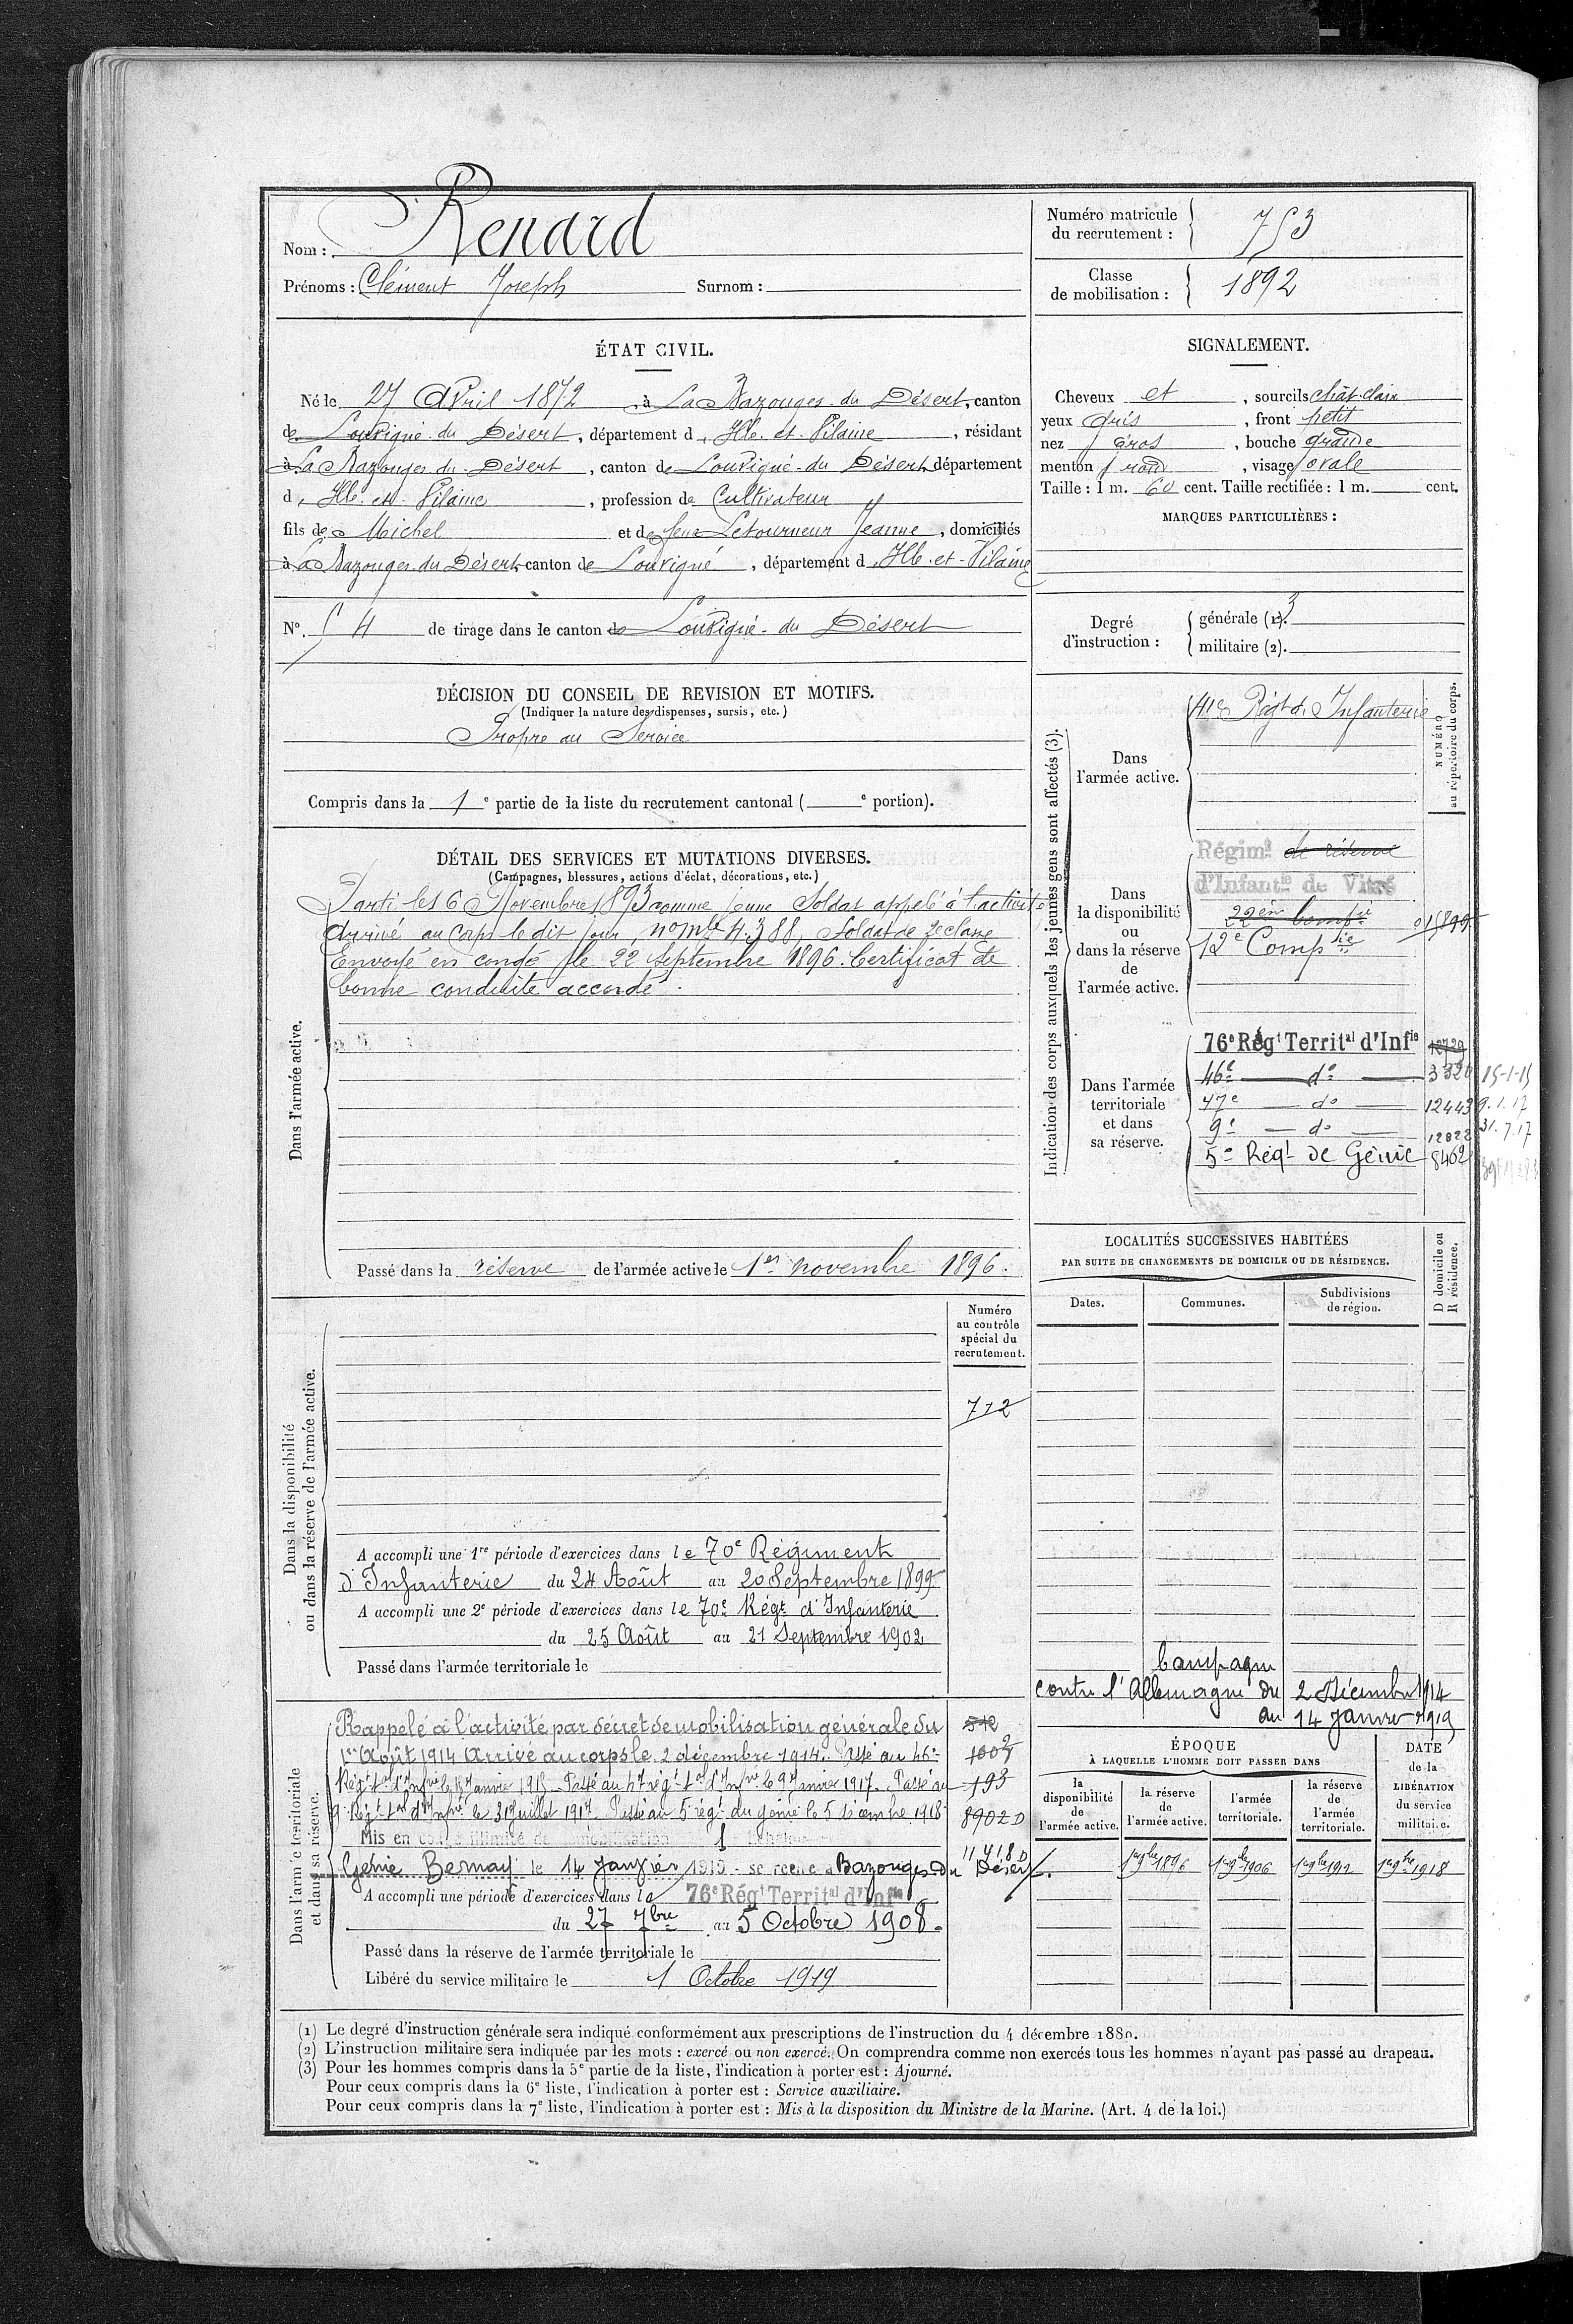 Nom : Renard
Prénoms : Clément Joseph Surnom :
ÉTAT CIVIL.
Né le 27 Avril 1872, à La Bazouges du Désert, canton
de Louvigné du Désert, département d'Ille et Vilaine, résidant
à La Bazouges du Désert, canton de Louvigné-du Désert, département
d'Ille et Vilaine, profession de Cultivateur
fils de Michel et de feue Letourneur Jeanne, domiciliés
à La Bazouges du Désert, canton de Louvigné, département d'Ille-et-Vilaine
N°. 54 de tirage dans le canton de Louvigné-du Désert
DÉCISION DU CONSEIL DE REVISION ET MOTIFS.
(Indiquer la nature des dispenses, sursis, etc.)
Propre au Service
Compris dans la 1e partie de la liste du recrutement cantonal ( e portion).
DÉTAIL DES SERVICES ET MUTATIONS DIVERSES.
(Campagnes, blessures, actions d'éclat, décorations, etc.)
Dans l'armée active.
Parti le 16 Novembre 1893 comme jeune Soldat appelé à l'activité
Arrivé au Corps le dit jour, n° mle 4.388, Soldat de 2e classe
Envoyé en congé le 22 Septembre 1896. Certificat de
bonne conduite accordé.
Passé dans la réserve de l'armée active le 1er novembre 1896.
Dans la disponibilité
ou dans la réserve de l'armée active.
Numéro
au contrôle
spécial du
recrutement.
712
A accompli une 1re période d'exercices dans le 70e Régiment
d'Infanterie du 24 Août au 20 Septembre 1899
A accompli une 2e période d'exercices dans le 70e Régt d'Infanterie
du 25 Août au 21 Septembre 1902
Passé dans l'armée territoriale le
Dans l'armée territoriale
et dans sa réserve.
Rappelé à l'activité par décret de mobilisation générale du
1er Août 1914 Arrivé au corps le 2 décembre 1914. Passé au 46e
Régt tal d'Infrie le 15 Janvier 1915. Passé au 47e régt tal d'Infrie le 9 Janvier 1917. Passé au
9e Régt tal d'Infrie le 31 Juillet 1917. Passé au 5e régt du génie le 5 décembre 1918
193
8902 D
11418 D
Mis en congé illimité de démobilisation
Génie Bernay le 14 Janvier 1919 - se retire à Bazouges du Désert.
A accompli une période d'exercices dans le 76e Régt Territal d'Infie
du 27 7bre au 5 Octobre 1908.
Passé dans la réserve de l'armée territoriale le
Libéré du service militaire le 1 Octobre 1919
Numéro matricule
du recrutement : 753
Classe
de mobilisation : 1892
SIGNALEMENT.
Cheveux et, sourcils chât. clair
yeux gris, front petit
nez gros, bouche grande
menton rond, visage ovale
Taille : 1 m. 60 cent. Taille rectifiée : 1 m. cent.
MARQUES PARTICULIÈRES :
Degré
d'instruction :
générale (1). 3
militaire (2).
Indication des corps auxquels les jeunes gens sont affectés (3).
NUMÉRO
au répertoire du corps.
Dans
l'armée active.
41e Régt d'Infanterie
Dans
la disponibilité
ou
dans la réserve
de
l'armée active.
Régimt de réserve
d'Infantie de Vitré
22em Compie
12e Compie
Dans l'armée
territoriale
et dans
sa réserve.
76e Régt Territal d'Infie
46e — do — 3320 15-1-15
47e — do — 12443 9.1.17
9e — do — 12822 31.7.17
5e Régt de Génie 8462
LOCALITÉS SUCCESSIVES HABITÉES
PAR SUITE DE CHANGEMENTS DE DOMICILE OU DE RÉSIDENCE.
Dates. Communes. Subdivisions
de région.
D domicile ou
R résidence.
Campagne
contre l'Allemagne du 2 Décembre 1914
au 14 Janvier 1919
ÉPOQUE
À LAQUELLE L'HOMME DOIT PASSER DANS
la
disponibilité
de
l'armée active.
la réserve
de
l'armée active.
l'armée
territoriale.
la réserve
de
l'armée
territoriale.
DATE
de la
LIBÉRATION
du service
militaire.
1er 9bre 1896 1er 9bre 1906 1er 9bre 1912 1er 9bre 1918
(1) Le degré d'instruction générale sera indiqué conformément aux prescriptions de l'instruction du 4 décembre 1889.
(2) L'instruction militaire sera indiquée par les mots : exercé ou non exercé. On comprendra comme non exercés tous les hommes n'ayant pas passé au drapeau.
(3) Pour les hommes compris dans la 5e partie de la liste, l'indication à porter est : Ajourné.
Pour ceux compris dans la 6e liste, l'indication à porter est : Service auxiliaire.
Pour ceux compris dans la 7e liste, l'indication à porter est : Mis à la disposition du Ministre de la Marine. (Art. 4 de la loi.)